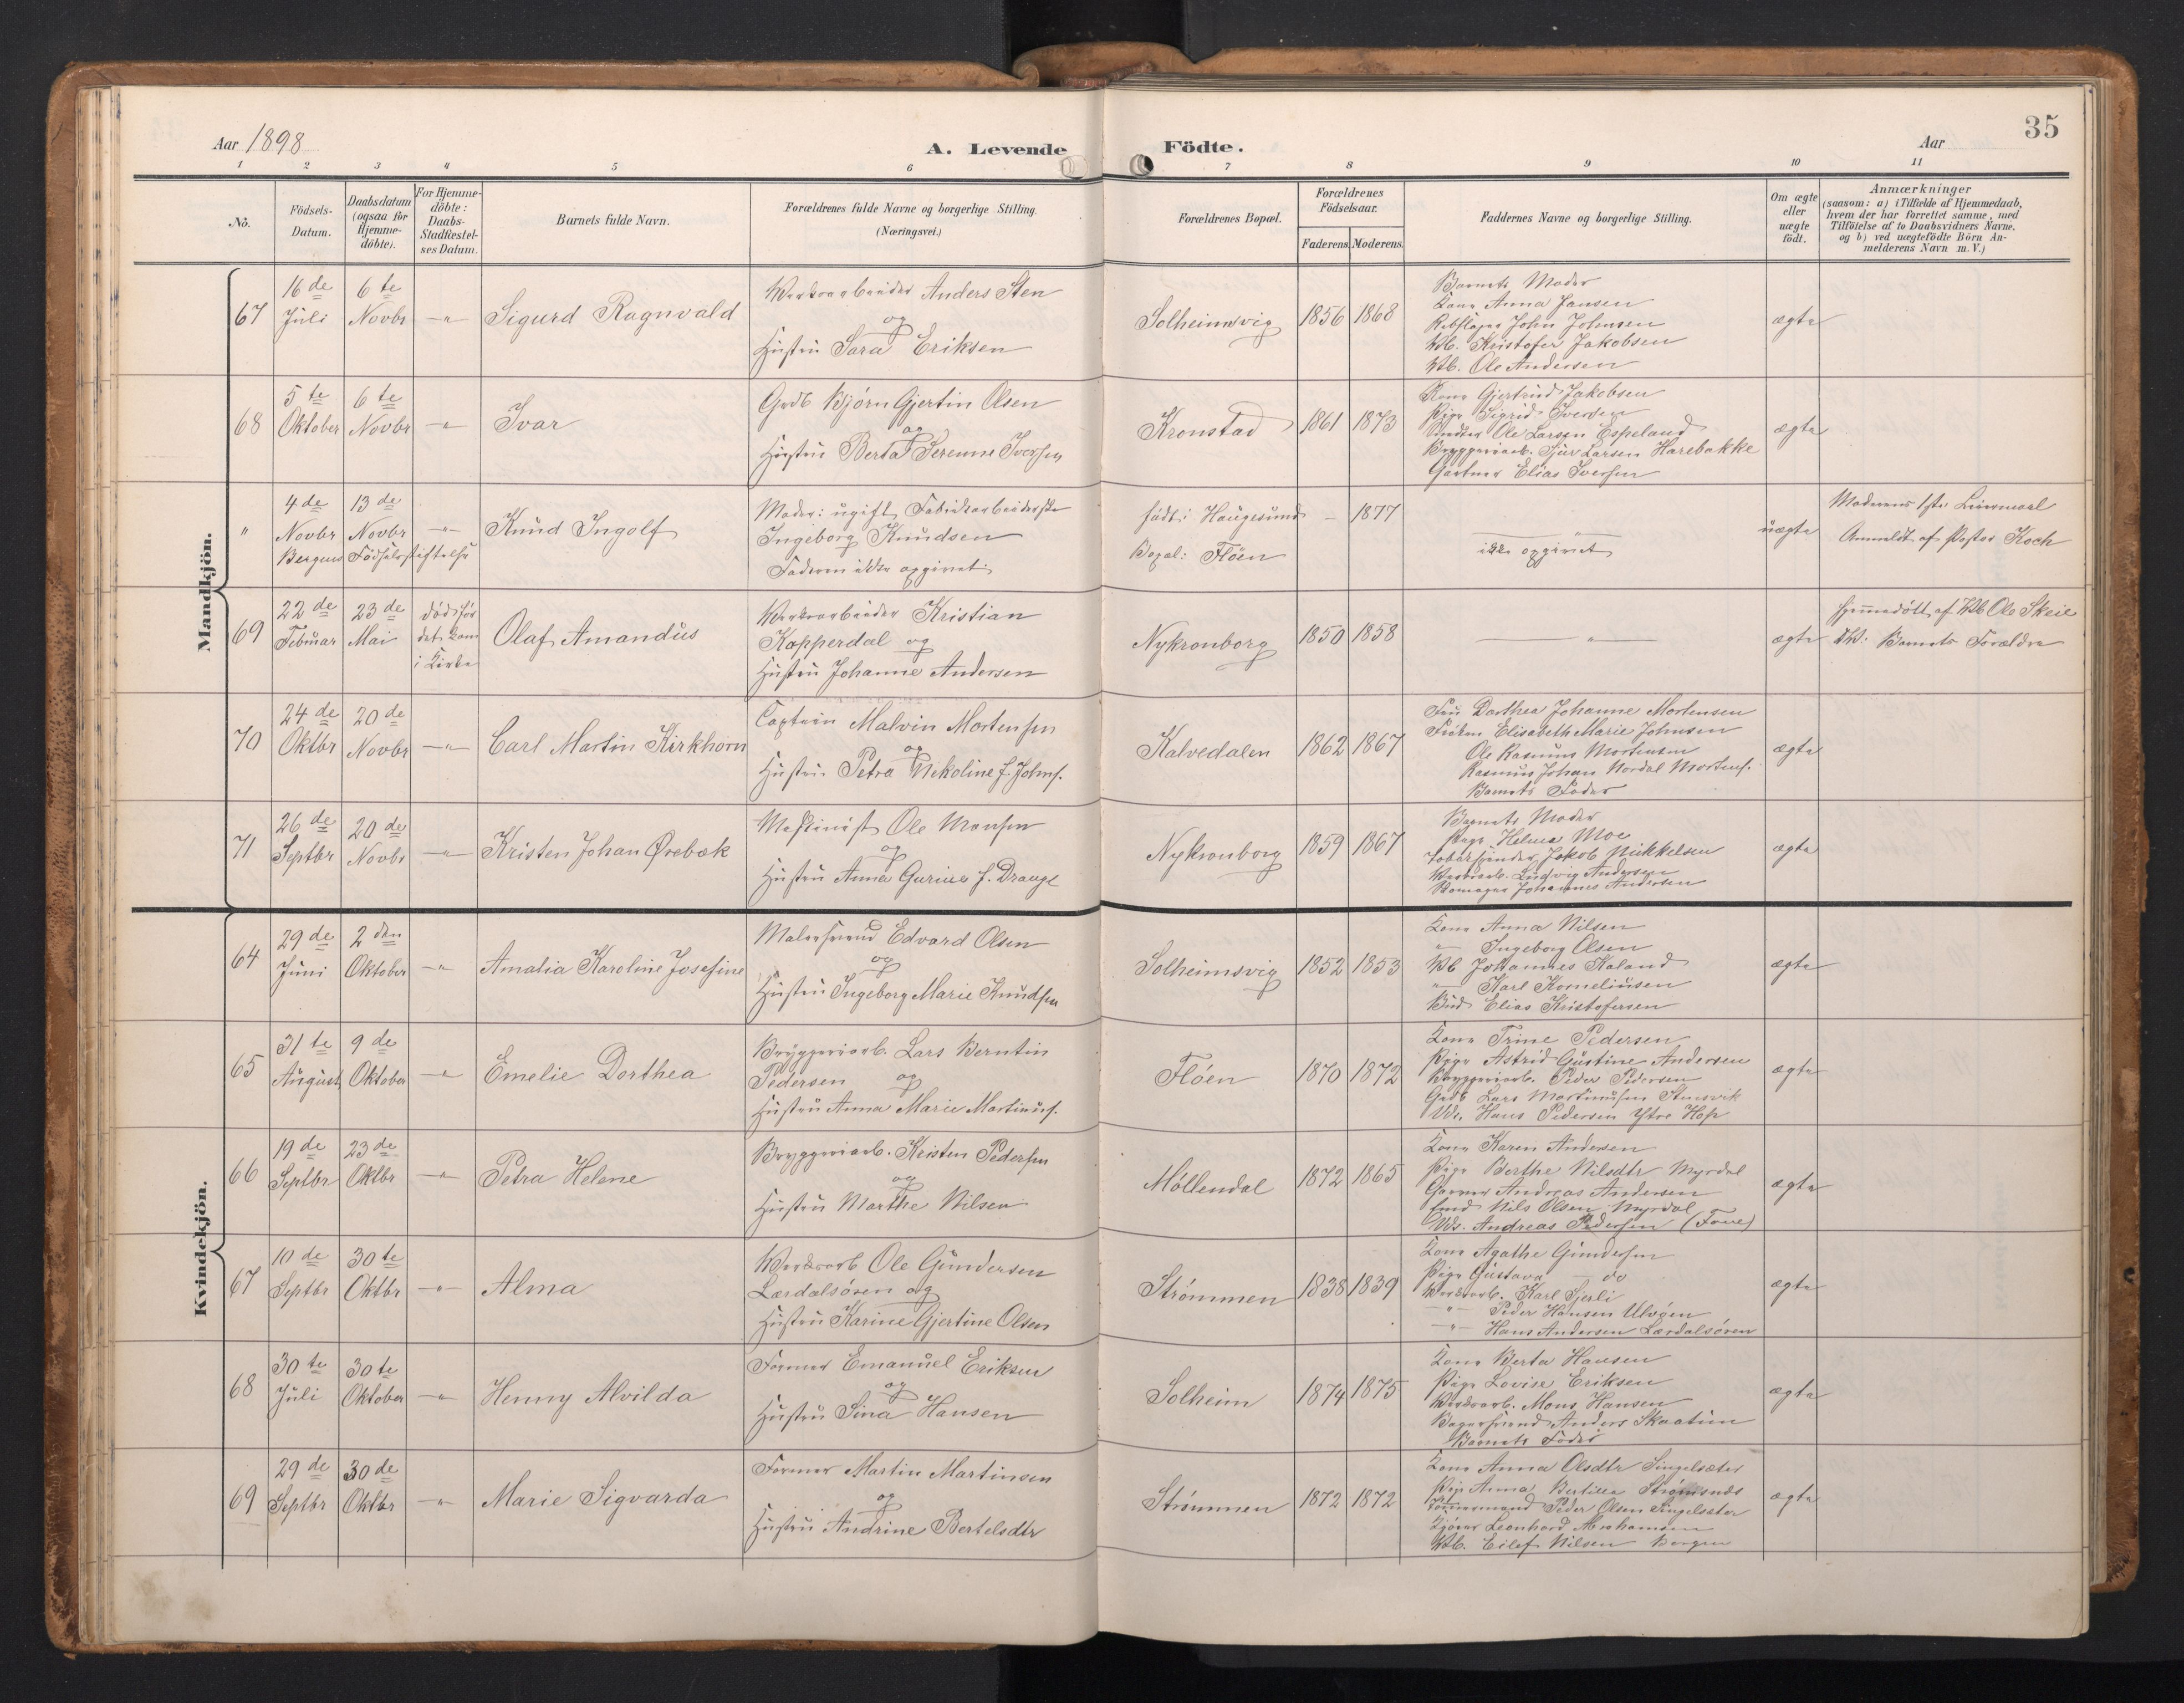 35
Aar 1898
A. Levende Födte.
Aar
1 2 3 4 5 6 7 8 9 10 11
No.
Födsels-Datum.
Daabsdatum (ogsaa for Hjemmedöbte).
For Hjemmedöbte: Daabs-Stadfæstelses Datum.
Barnets fulde Navn.
Forældrenes fulde Navne og borgerlige Stilling.
(Næringsvei.)
Forældrenes Bopæl.
Forældrenes Födselsaar.
Faderens. Moderens.
Faddernes Navne og borgerlige Stilling.
Om ægte eller uægte födt.
Anmærkninger
(saasom: a) i Tilfælde af Hjemmedaab,
hvem der har forrettet samme, med
Tilföielse af to Daabsvidners Navne.
og b) ved uægtefödte Börn An-
melderens Navn m. V.)
Mandkjön.
67
16de Juli
6te Novbr
Sigurd Ragnvald
Verksarbeider Anders Sten
og
Hustru Sara Eriksen
Solheimsvig
1856 1868
Barnets Moder
Kone Anna Jansen
Rebslager John Johnsen
Vkb. Kristofer Jakobsen
Vkb. Ole Andersen
ægte
68
5te Oktober
6te Novbr
Ivar
Grdb Bjørn Gjertin Olsen
og
Hustru Berta Serenne Iversen
Kronstad
1861 1873
Kone Gjertrud Jakobsen
Pige Sigrid Iversen
Ole Larsen Espeland
Bryggeriarb. Sjur Larsen Harebakke
Gartner Elias Iversen
ægte
"
4de Novbr
13de Novbr
Bergens Födselsstiftelse
Knud Ingolf
Moder: ugift Fabrikarbeiderske
Ingeborg Knudsen
Faderen ikke opgivet.
född i Haugesund
Bopæl: Flöen
1877
ikke opgivet
uægte
Moderens 1ste Leiermaal
Anmeldt af Pastor Koch
69
22de Februar
23de Mai
död för det kom i Kirke
Olaf Amandus
Verksarbeider Kristian
Kopperdal og
Hustru Johanne Andersen
Nykronborg
1850 1858
ægte
Hjemmedöbt af Vkb Ole Skeie
Barnets Forældre
70
24de Oktbr
20de Novbr
Carl Martin Kirkhorn
Captein Malvin Mortensen
og
Hustru Petra Nekoline f. Johns.
Kalvedalen
1862 1867
Fru Dorthea Johanne Mortensen
Fröken Elisabeth Marie Johnsen
Ole Rasmus Mortensen
Rasmus Johan Nordal Mortens.
Barnets Fader
ægte
71
26de Septbr
20de Novbr
Kristen Johan Ørebæk
Maskinist Ole Monsen
og
Hustru Anna Gurine f. Drange
Nykronborg
1859 1867
Barnets Moder
Pige Helma Moe
Jakob Mikkelsen
Verksarb. Ludvig Andersen
Johannes Andersen
ægte
Kvindekjön.
64
29de Juni
2den Oktober
Amalia Karoline Josefine
Malersvend Edvard Olsen
og
Hustru Ingeborg Marie Knudsen
Solheimsvig
1852 1853
Kone Anna Nilsen
" Ingeborg Olsen
Vkb Johannes Kaland
" Karl Korneliusen
Bud Elias Kristofersen
ægte
65
31te August
9de Oktober
Emelie Dorthea
Bryggeriarb. Lars Berntin
Pedersen og
Hustru Anna Marie Martinus.
Flöen
1870 1872
Kone Trine Pedersen
Pige Astrid Gustine Andersen
Bryggeriarb. Peder Pedersen
Grdb Lars Martinusen Stensvik
Hans Pedersen Ytre Hop
ægte
66
19de Septbr
23de Oktbr
Petra Helene
Bryggeriarb. Kristen Pedersen
og
Hustru Marthe Nilsen
Möllendal
1872 1865
Kone Karen Andersen
Pige Berthe Nilsdtr Myrdal
Garver Andreas Andersen
Nils Olsen Myrdal
Andreas Pedersen
ægte
67
10de Septbr
30te Oktbr
Alma
Verksarb Ole Gundersen
Lærdalsören og
Hustru Karine Gjertine Olsen
Strömmen
1838 1839
Kone Agathe Gundersen
Pige Gustava do
Verksarb. Karl Sjerli
" Peder Hansen Ulvöen
" Hans Andersen Lærdalsören
ægte
68
30te Juli
30te Oktober
Henny Alvilda
Former Emanuel Eriksen
og
Hustru Sina Hansen
Solheim
1874 1875
Kone Berta Hansen
Pige Lovise Eriksen
Verksarb. Mons Hansen
Bagersvend Anders Skaatun
Barnets Fader
ægte
69
29de Septbr
30de Oktbr
Marie Sigvarda
Former Martin Martinsen
og
Hustru Andrine Bertelsdtr
Strömmen
1872 1872
Kone Anna Olsdtr Singelsæter
Pige Anna Bertilla Strömsnes
Tömmermand Peder Olsen Singelsæter
Kjörer Leonhard Abrahamsen
Vkb. Eilef Nilsen Bergen
ægte